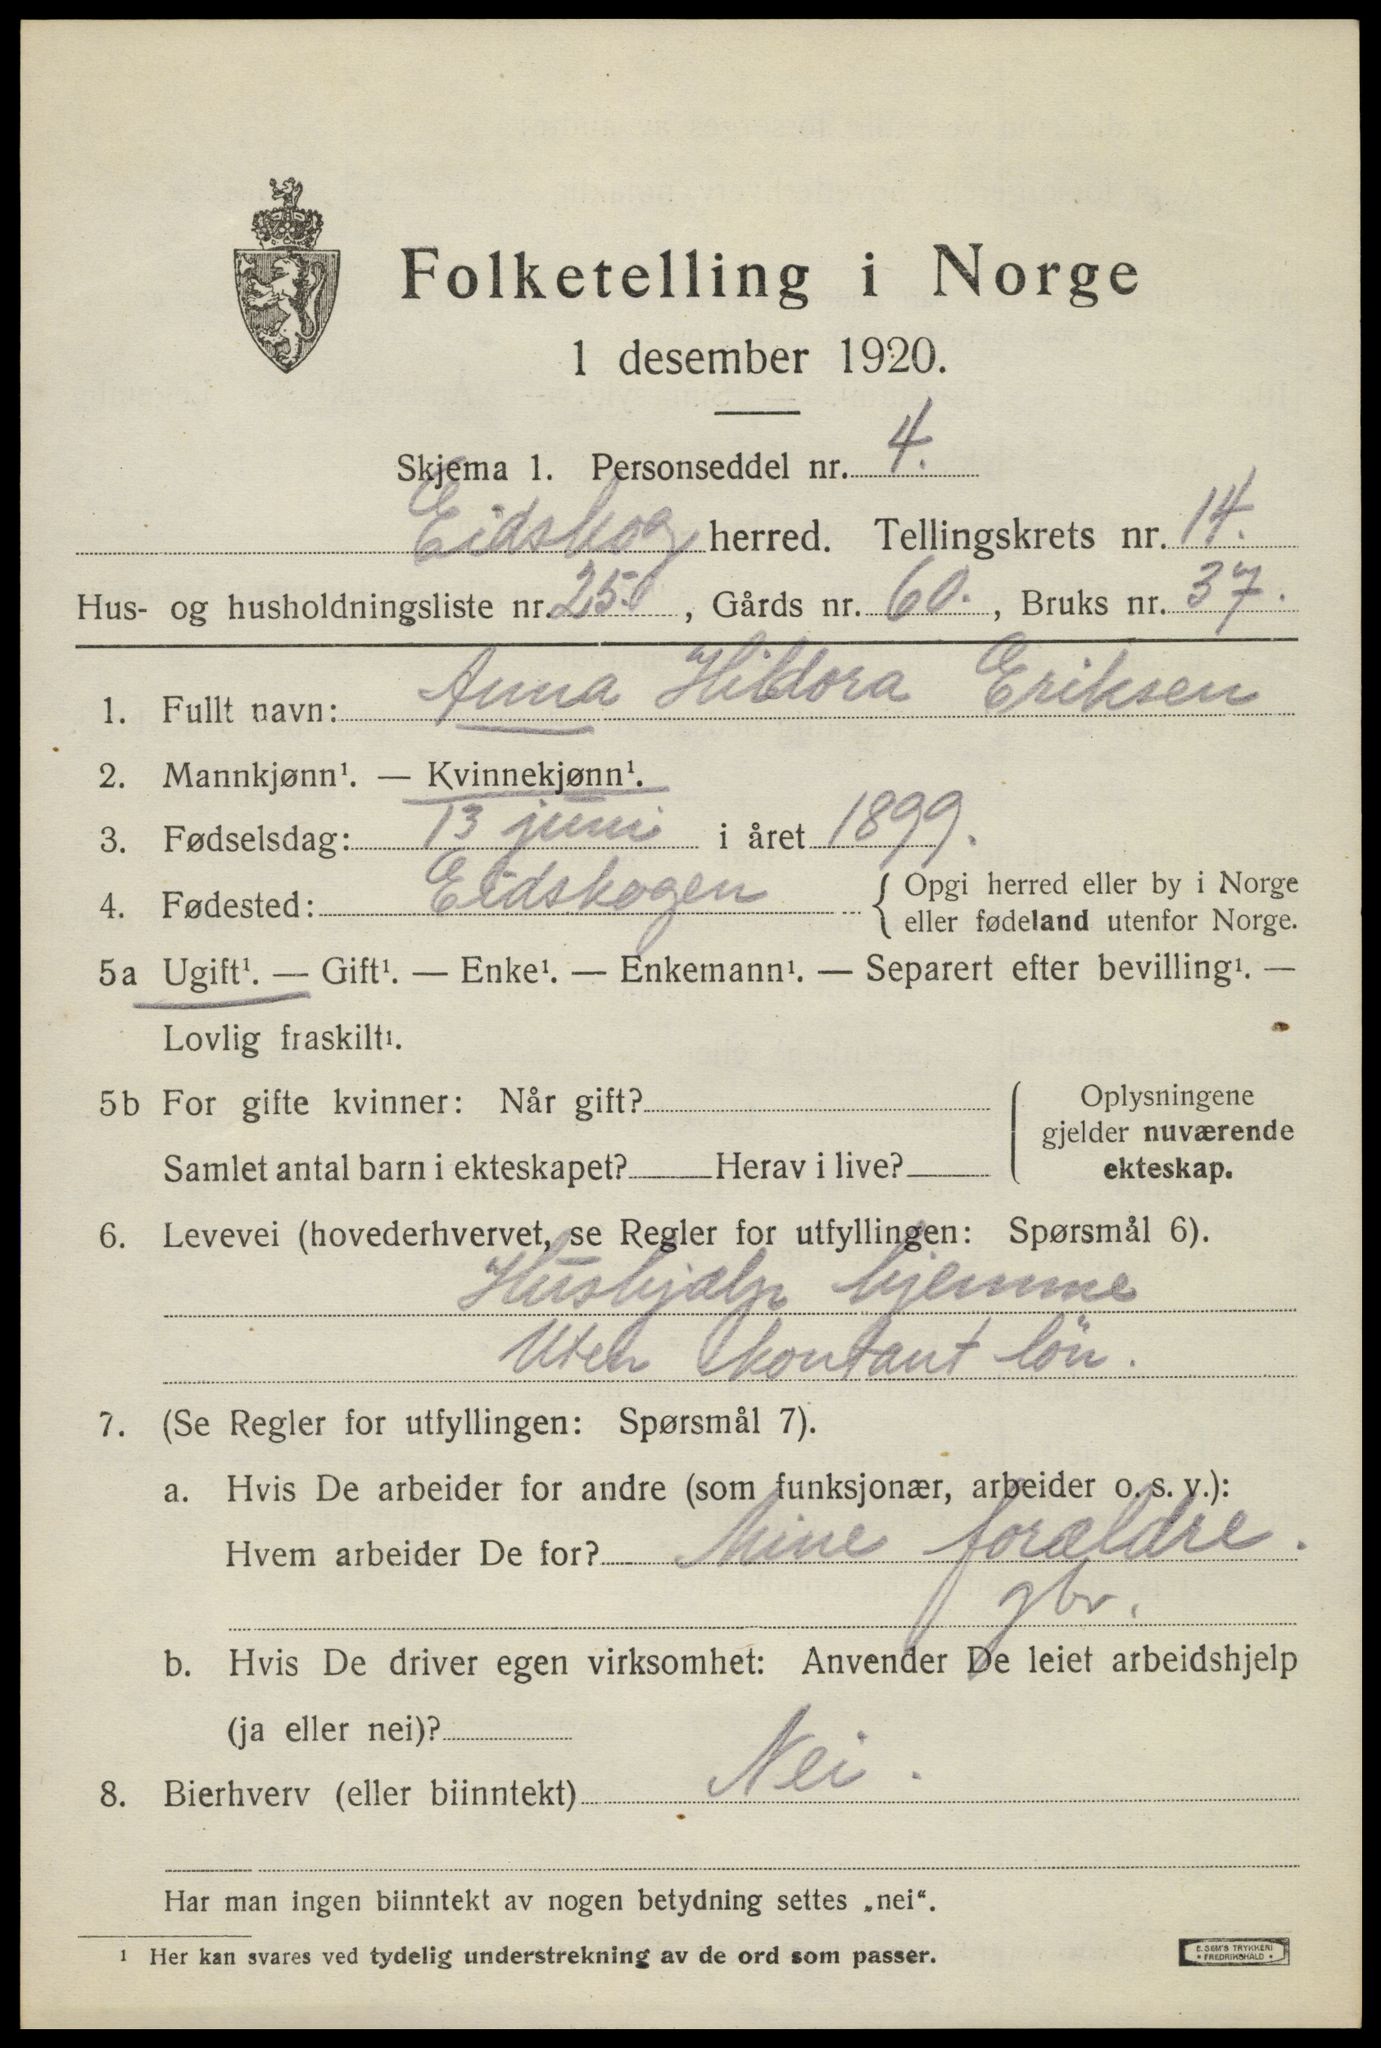 Folketelling i Norge
1 desember 1920.
Skjema 1. Personseddel nr. 4.
Eidskog herred. Tellingskrets nr. 14.
Hus- og husholdningsliste nr. 25. , Gårds nr. 60. , Bruks nr. 37.
1. Fullt navn: Anna Hildora Eriksen
2. Mannkjønn¹. — Kvinnekjønn¹.
3. Fødselsdag: 13 juni i året 1899.
4. Fødested: Eidskogen { Opgi herred eller by i Norge
eller fødeland utenfor Norge.
5a Ugift¹. — Gift¹. — Enke¹. — Enkemann¹. — Separert efter bevilling¹. —
Lovlig fraskilt¹.
5b For gifte kvinner: Når gift? Oplysningene
gjelder nuværende
Samlet antal barn i ekteskapet? Herav i live? ekteskap.
6. Levevei (hovederhvervet, se Regler for utfyllingen: Spørsmål 6).
Hushjælp hjemme
Uten kontant lön.
7. (Se Regler for utfyllingen: Spørsmål 7).
a. Hvis De arbeider for andre (som funksjonær, arbeider o. s. v.):
Hvem arbeider De for? Mine forældre.
gbr.
b. Hvis De driver egen virksomhet: Anvender De leiet arbeidshjelp
(ja eller nei)?
8. Bierhverv (eller biinntekt) Nei.
Har man ingen biinntekt av nogen betydning settes „nei“.
¹ Her kan svares ved tydelig understrekning av de ord som passer.
E. SEM'S TRYKKERI
• FREDRIKSHALD •